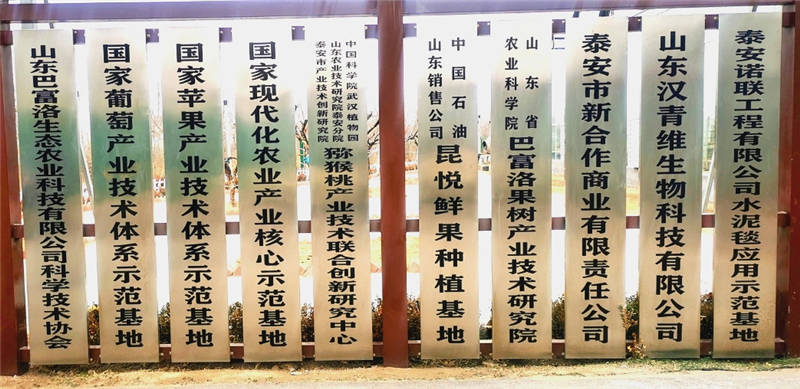 山东巴富洛生态农业科技有限公司科学技术协会
国家葡萄产业技术体系示范基地
国家苹果产业技术体系示范基地
国家现代化农业产业核心示范基地
中国科学院武汉植物园
山东农业技术研究院泰安分院
泰安市产业技术创新研究院
猕猴桃产业技术联合创新研究中心
中国石油
山东销售公司
昆悦鲜果种植基地
山东省
农业科学院
巴富洛果树产业技术研究院
泰安市新合作商业有限责任公司
山东汉青维生物科技有限公司
泰安诺联工程有限公司水泥毯应用示范基地